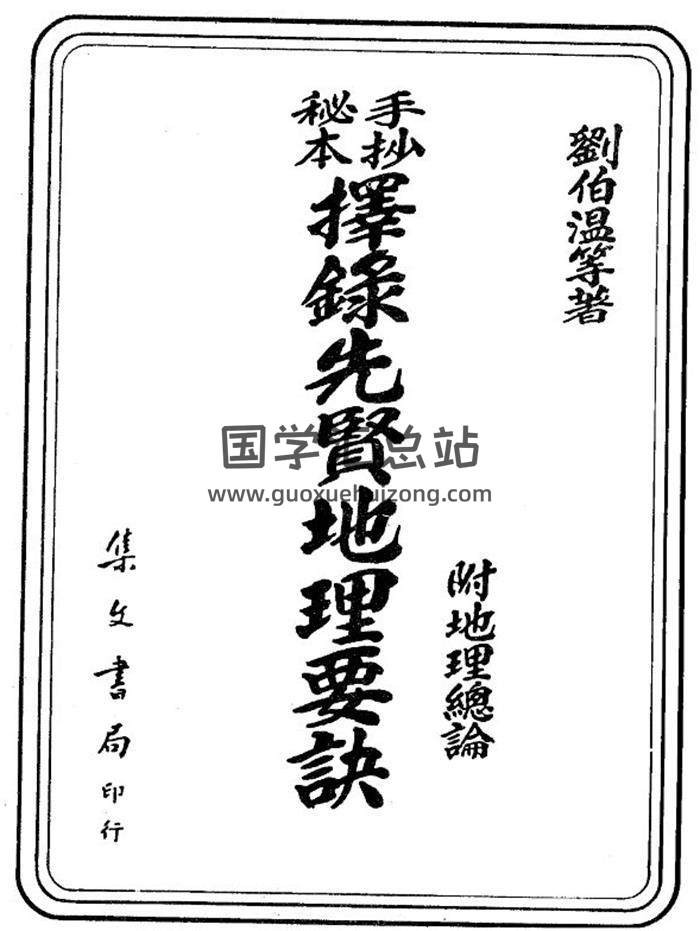 劉伯溫等著
附地理總論
手抄
秘本
擇錄先賢地理要訣
集文書局印行
国学 总站
www.guoxuehuizong.com